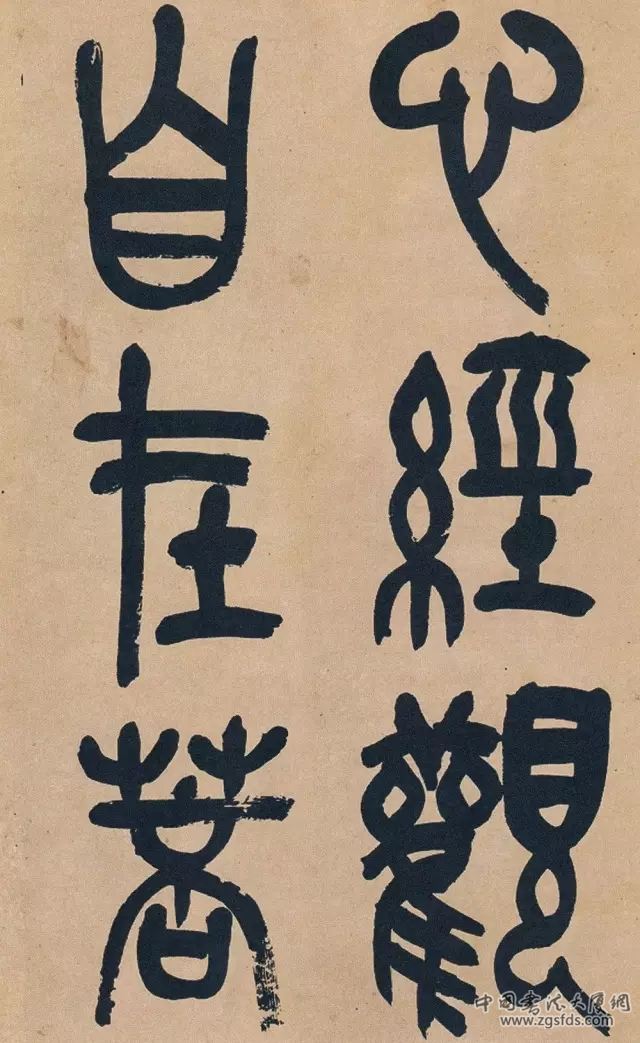 心經觀
自在菩
中国书法大展网
www.zgsfds.com